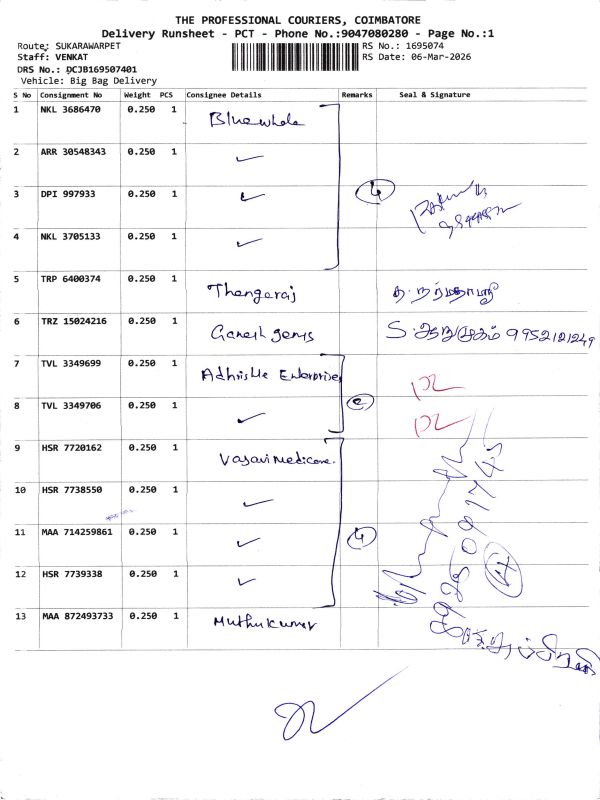 THE PROFESSIONAL COURIERS, COIMBATORE
Delivery Runsheet - PCT - Phone No.:9047080280 - Page No.:1
Route: SUKARAWARPET RS No.: 1695074
Staff: VENKAT RS Date: 06-Mar-2026
DRS No.: DCJB169507401
Vehicle: Big Bag Delivery
S No Consignment No Weight PCS Consignee Details Remarks Seal & Signature
1 NKL 3686470 0.250 1 Bluewhale
2 ARR 30548343 0.250 1 ✓
3 DPI 997933 0.250 1 ✓ 4
4 NKL 3705133 0.250 1 ✓
5 TRP 6400374 0.250 1 Thangaraj
6 TRZ 15024216 0.250 1 Ganesh gems S. ஆறுமுகம் 9952121249
7 TVL 3349699 0.250 1 Adhrishe Enterprises
8 TVL 3349706 0.250 1 ✓ 2
9 HSR 7720162 0.250 1 Vasavi medicare.
10 HSR 7738550 0.250 1 ✓
11 MAA 714259861 0.250 1 ✓ 4
12 HSR 7739338 0.250 1 ✓
13 MAA 872493733 0.250 1 Muthukumar